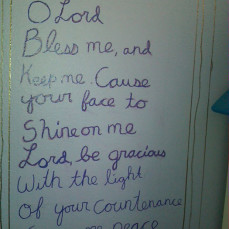 O Lord
Bless me, and
Keep me. Cause
your face to
Shine on me
Lord, be gracious
With the light
Of your Countenance
me peace